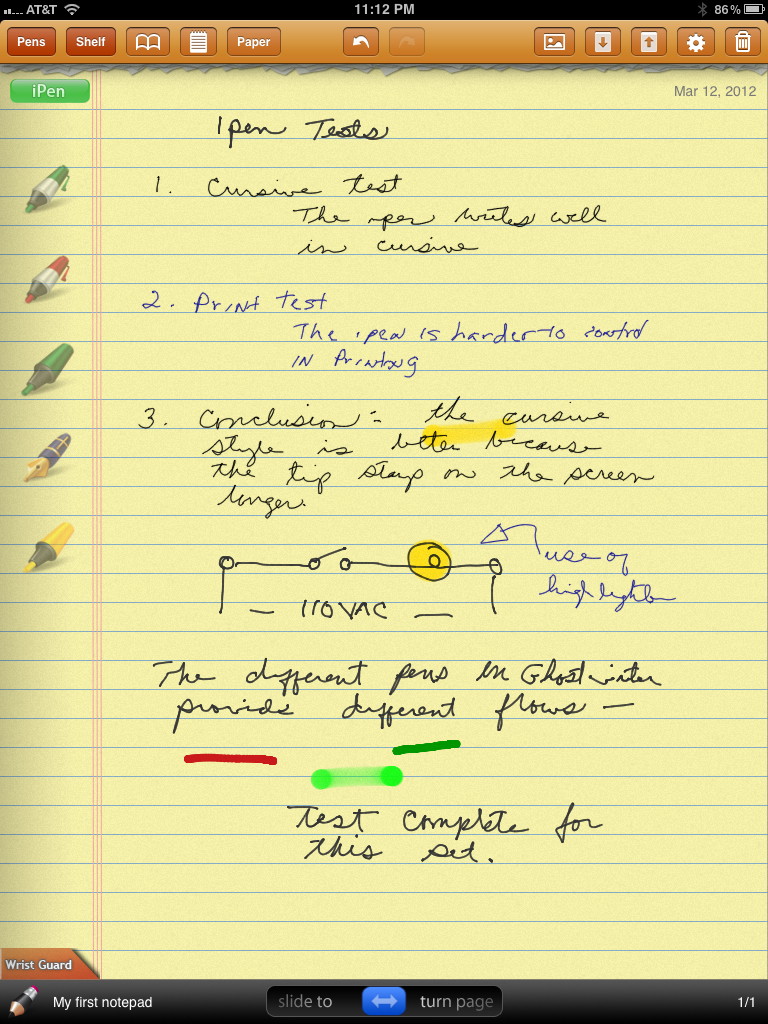 AT&T 11:12 PM 86%
Pens Shelf Paper
iPen
Mar 12, 2012
Ipen Tests
1. Cursive test
The ipen writes well
in cursive
2. Print Test
The ipen is harder to control
in Printing
3. Conclusion:- the cursive
style is better because
the tip stays on the screen
longer.
use of
highlighter
— 110 VAC —
The different pens in Ghostwriter
provids different flows —
Test complete for
this set.
Wrist Guard
My first notepad slide to turn page 1/1